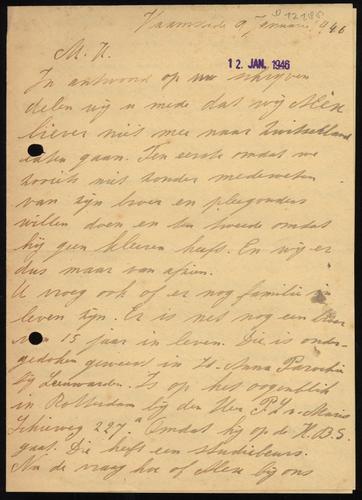 9 Januari 1946
12 JAN. 1946
M. H.
In antwoord op uw schrijven
delen wij u mede dat wij Alex
liever niet mee naar Zwitserland
laten gaan. Ten eerste omdat we
zooiets niet zonder medeweten
van zijn broer en pleegouders
willen doen en ten tweede omdat
hij geen kleeren heeft. En wij er
dus maar van afzien.
U vroeg ook of er nog familie in
leven zijn. Er is net nog een broer
van 15 jaar in leven. Die is onder-
gedoken geweest in St. Anna Parochie
bij Leeuwarden. Is op het oogenblik
in Rotterdam bij den Heer P. L. v.
Schieweg 227. Omdat hij op de H.B.S.
gaat. Die heeft een studiebeurs.
Na de vraag hoe of Alex bij ons